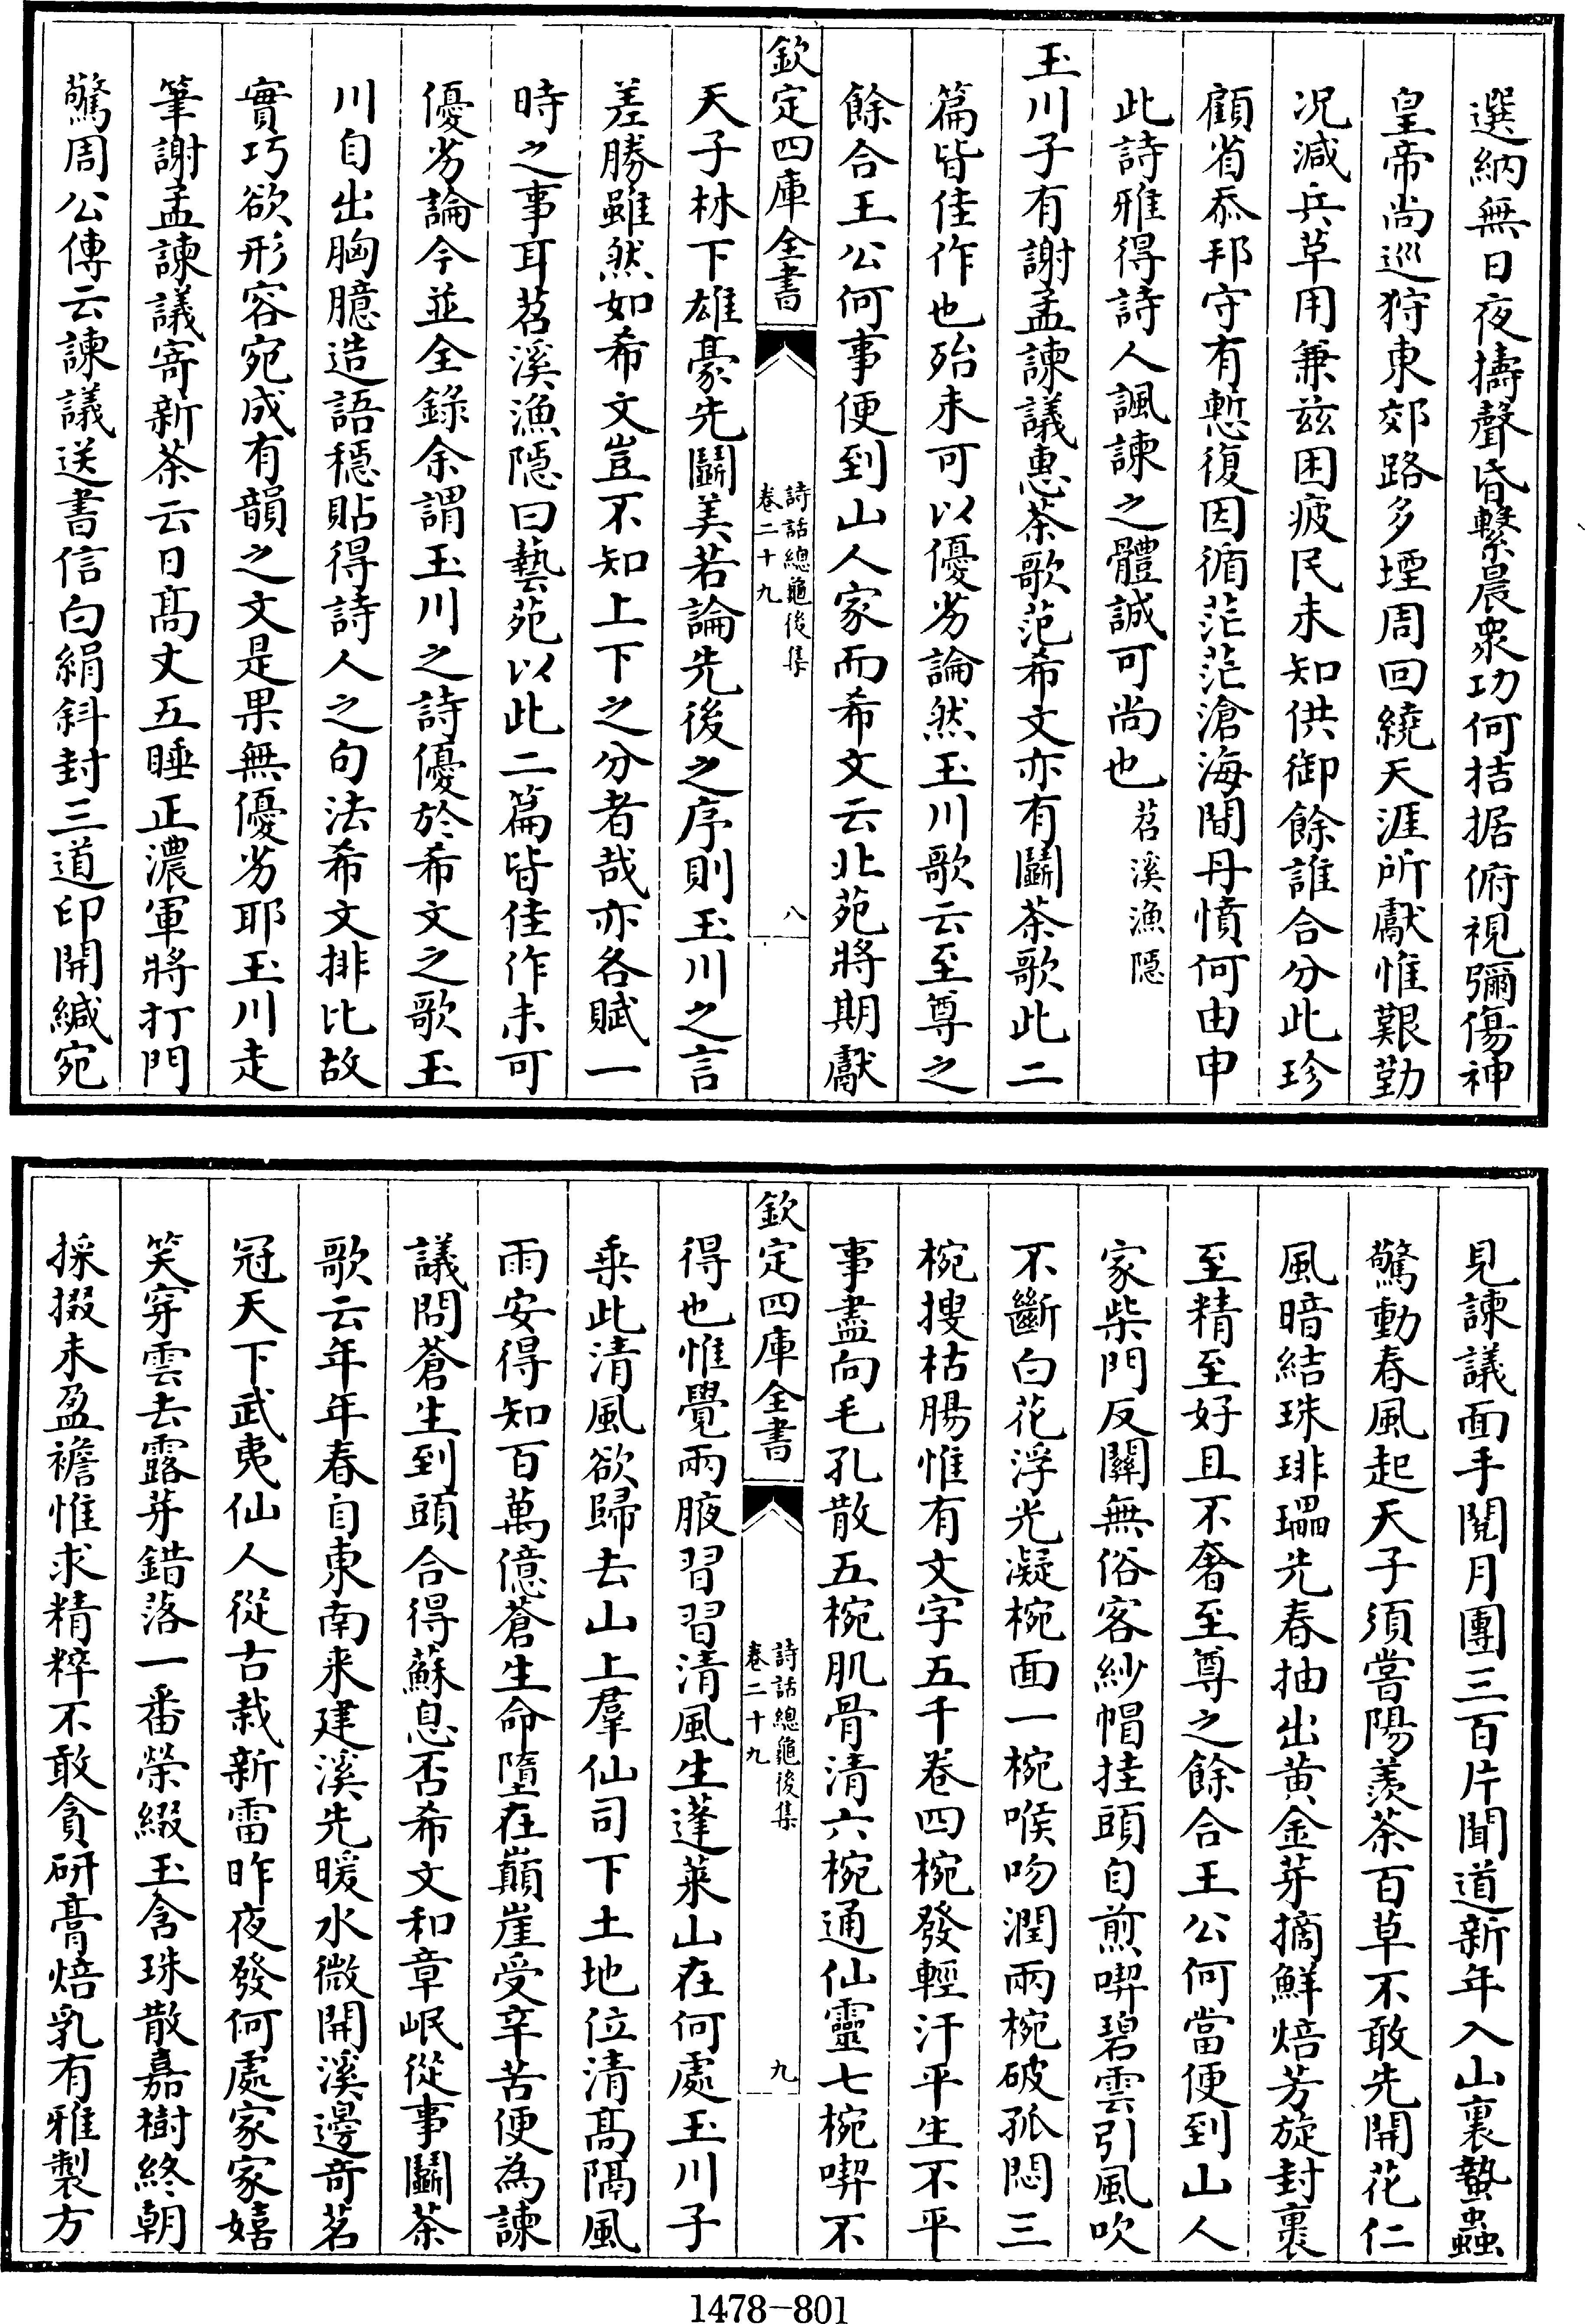 選納無日夜擣聲昏繫晨衆功何拮据俯視彌傷神
皇帝尚巡狩東郊路多堙周回繞天涯所獻惟艱勤
况減兵革用兼兹困疲民未知供御餘誰合分此珍
顧省忝邦守有慙復因循茫茫滄海間丹憤何由申
此詩雅得詩人諷諫之體誠可尚也苕溪漁隱
玉川子有謝孟諫議惠茶歌范希文亦有鬭茶歌此二
篇皆佳作也殆未可以優劣論然玉川歌云至尊之
餘合王公何事便到山人家而希文云北苑將期獻
欽定四庫全書
詩話總龜後集
卷二十九
八
天子林下雄豪先鬭美若論先後之序則玉川之言
差勝雖然如希文豈不知上下之分者哉亦各賦一
時之事耳苕溪漁隱曰藝苑以此二篇皆佳作未可
優劣論今並全錄余謂玉川之詩優於希文之歌玉
川自出胸臆造語穩貼得詩人之句法希文排比故
實巧欲形容宛成有韻之文是果無優劣耶玉川走
筆謝孟諫議寄新茶云日髙丈五睡正濃軍將打門
驚周公傳云諫議送書信白絹斜封三道印開緘宛
見諫議面手閱月團三百片聞道新年入山裏蟄蟲
驚動春風起天子須嘗陽羨茶百草不敢先開花仁
風暗結珠琲瓃先春抽出黄金芽摘鮮焙芳旋封裹
至精至好且不奢至尊之餘合王公何當便到山人
家柴門反關無俗客紗帽挂頭自煎喫碧雲引風吹
不斷白花浮光凝椀面一椀喉吻潤兩椀破孤悶三
椀搜枯腸惟有文字五千卷四椀發輕汗平生不平
事盡向毛孔散五椀肌骨清六椀通仙靈七椀喫不
欽定四庫全書
詩話總龜後集
卷二十九
九
得也惟覺兩腋習習清風生蓬萊山在何處玉川子
乘此清風欲歸去山上羣仙司下土地位清髙隔風
雨安得知百萬億蒼生命墮在巔崖受辛苦便為諫
議問蒼生到頭合得蘇息否希文和章岷從事鬭茶
歌云年年春自東南来建溪先暖水微開溪邊奇茗
冠天下武夷仙人從古栽新雷昨夜發何處家家嬉
笑穿雲去露芽錯落一番榮綴玉含珠散嘉樹終朝
採掇未盈襜惟求精粹不敢貪研膏焙乳有雅製方
1478-801